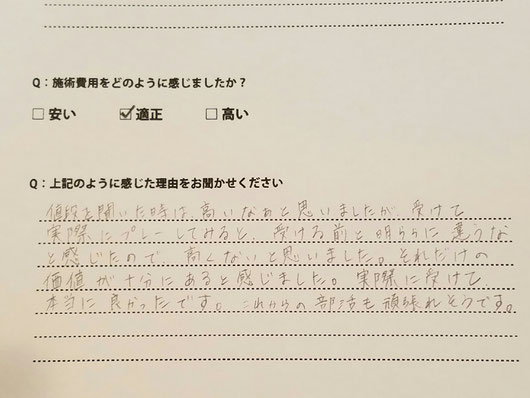 Q：施術費用をどのように感じましたか？
□ 安い ☑ 適正 □ 高い
Q：上記のように感じた理由をお聞かせください
値段を聞いた時は、高いなぁと思いましたが、受けて
実際にプレーしてみると、受ける前と明ららに違うな
と感じたので、高くないと思いました。それだけの
価値が十分にあると感じました。実際に受けて
本当に良かったです。これからの部活も頑張れそうです。